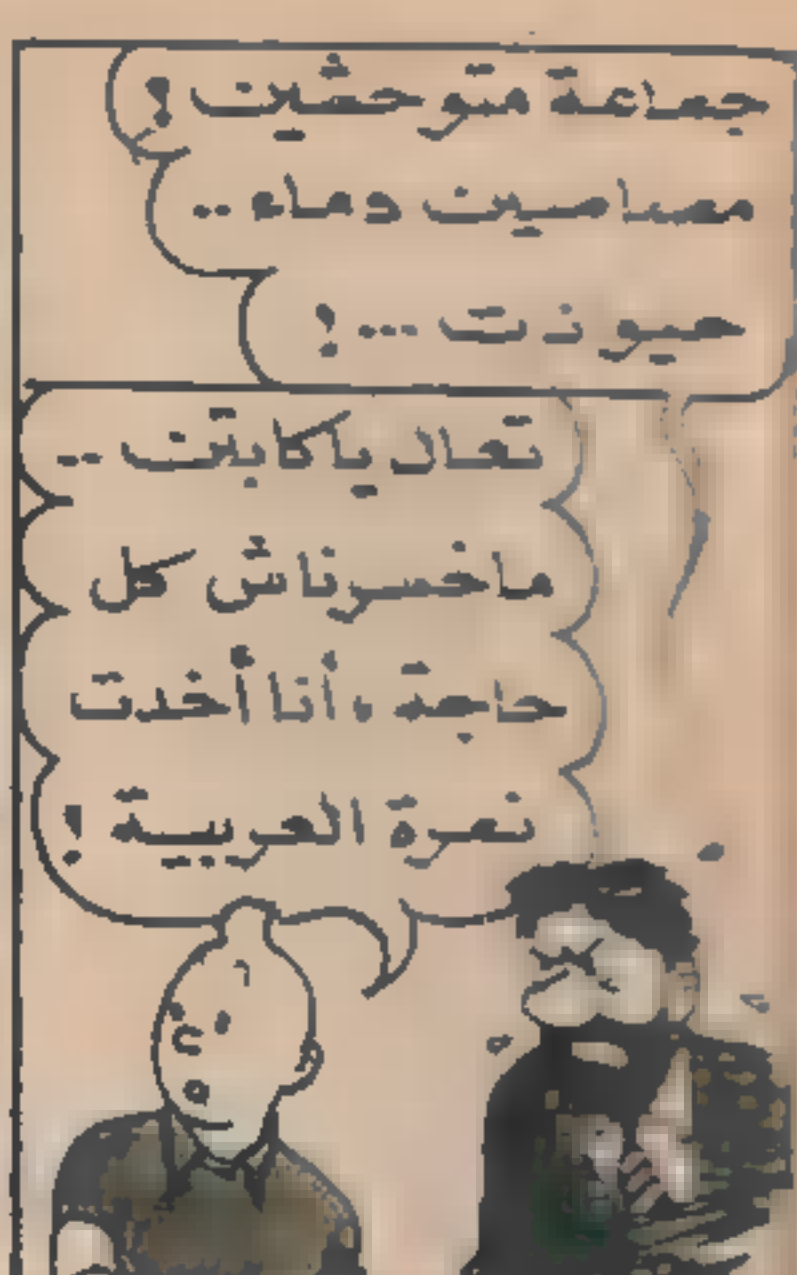 جماعة متوحشين !
مصاصين دماء ..
صيو نت ... !
تعال يا كابتن ..
ماخسرناش كل
حاجة ، أنا أخدت
نمرة العربية !